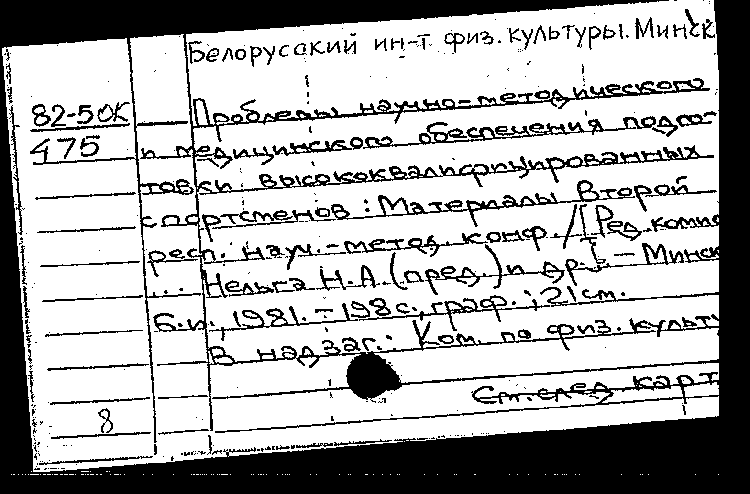 Белорусский ин-т физ. культуры. Минск
82-50К
475
Проблемы научно-методического
и медицинского обеспечения подго-
товки высококвалифицированных
спортсменов: Материалы Второй
респ. науч.-метод. конф. / [Ред. комис
... Нельга Н.А. (пред.) и др.]. - Минск
Б.и., 1981. - 198 с., граф.; 21 см.
В надзаг.: Ком. по физ. культу
См. след. карт
8